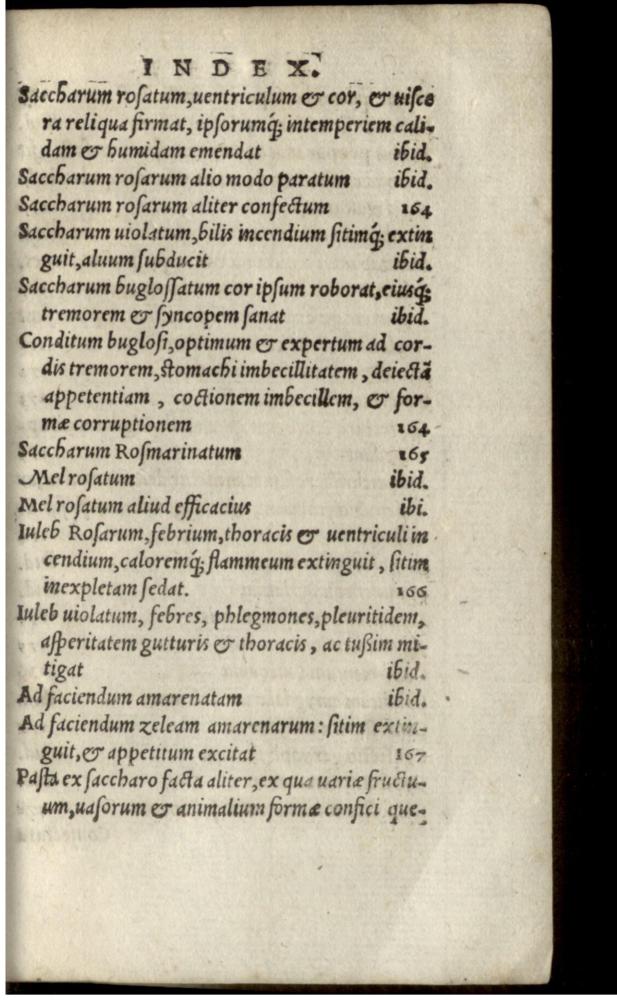 INDEX.
Saccharum rosatum,uentriculum & cor, & uisce
ra reliqua firmat, ipsorumq́; intemperiem cali-
dam & humidam emendat ibid.
Saccharum rosarum alio modo paratum ibid.
Saccharum rosarum aliter confectum 164
Saccharum uiolatum,bilis incendium sitimq́; extin
guit,aluum subducit ibid.
Saccharum buglossatum cor ipsum roborat,eiusq́;
tremorem & syncopem sanat ibid.
Conditum buglosi,optimum & expertum ad cor-
dis tremorem,stomachi imbecillitatem, deiectã
appetentiam, coctionem imbecillem, & for-
mæ corruptionem 164
Saccharum Rosmarinatum 165
Mel rosatum ibid.
Mel rosatum aliud efficacius ibi.
Iuleb Rosarum,febrium,thoracis & uentriculi in
cendium,caloremq́; flammeum extinguit, sitim
inexpletam sedat. 166
Iuleb uiolatum, febres, phlegmones,pleuritidem,
asperitatem gutturis & thoracis, ac tußim mi-
tigat ibid.
Ad faciendum amarenatam ibid.
Ad faciendum zeleam amarenarum: sitim extin-
guit,& appetitum excitat 167
Pasta ex saccharo facta aliter,ex qua uariæ fructu-
um,uasorum & animalium formæ confici que-